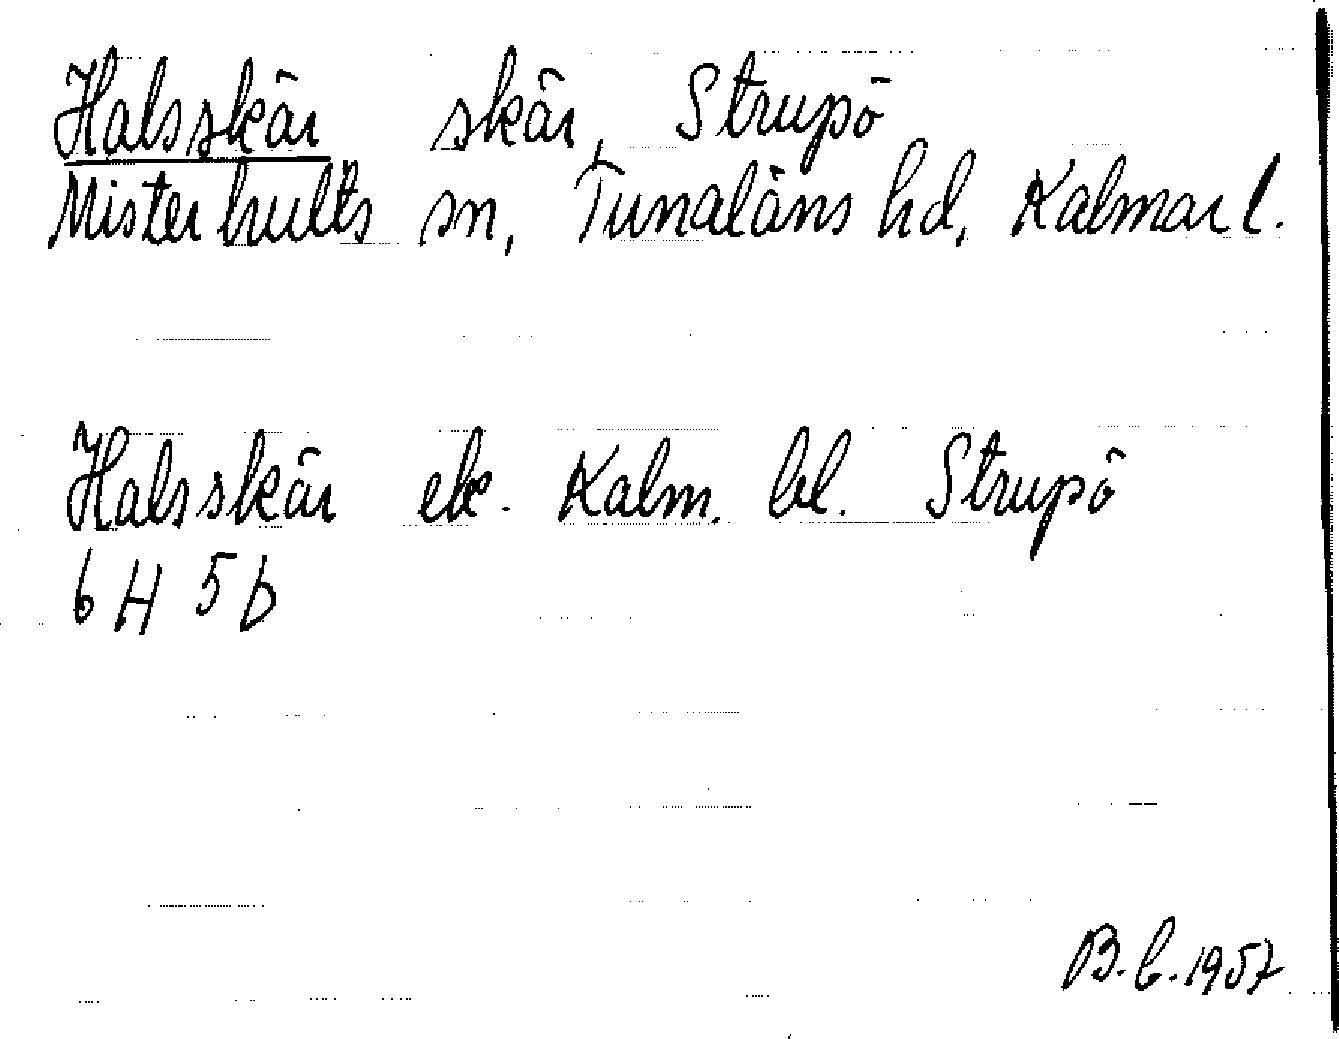 Halsskär skär, Strupö
Misterhults sn, Tunaläns hd, Kalmar l.
Halsskär ek. Kalm. bl. Strupö
6 H 5 b
B.C. 1957